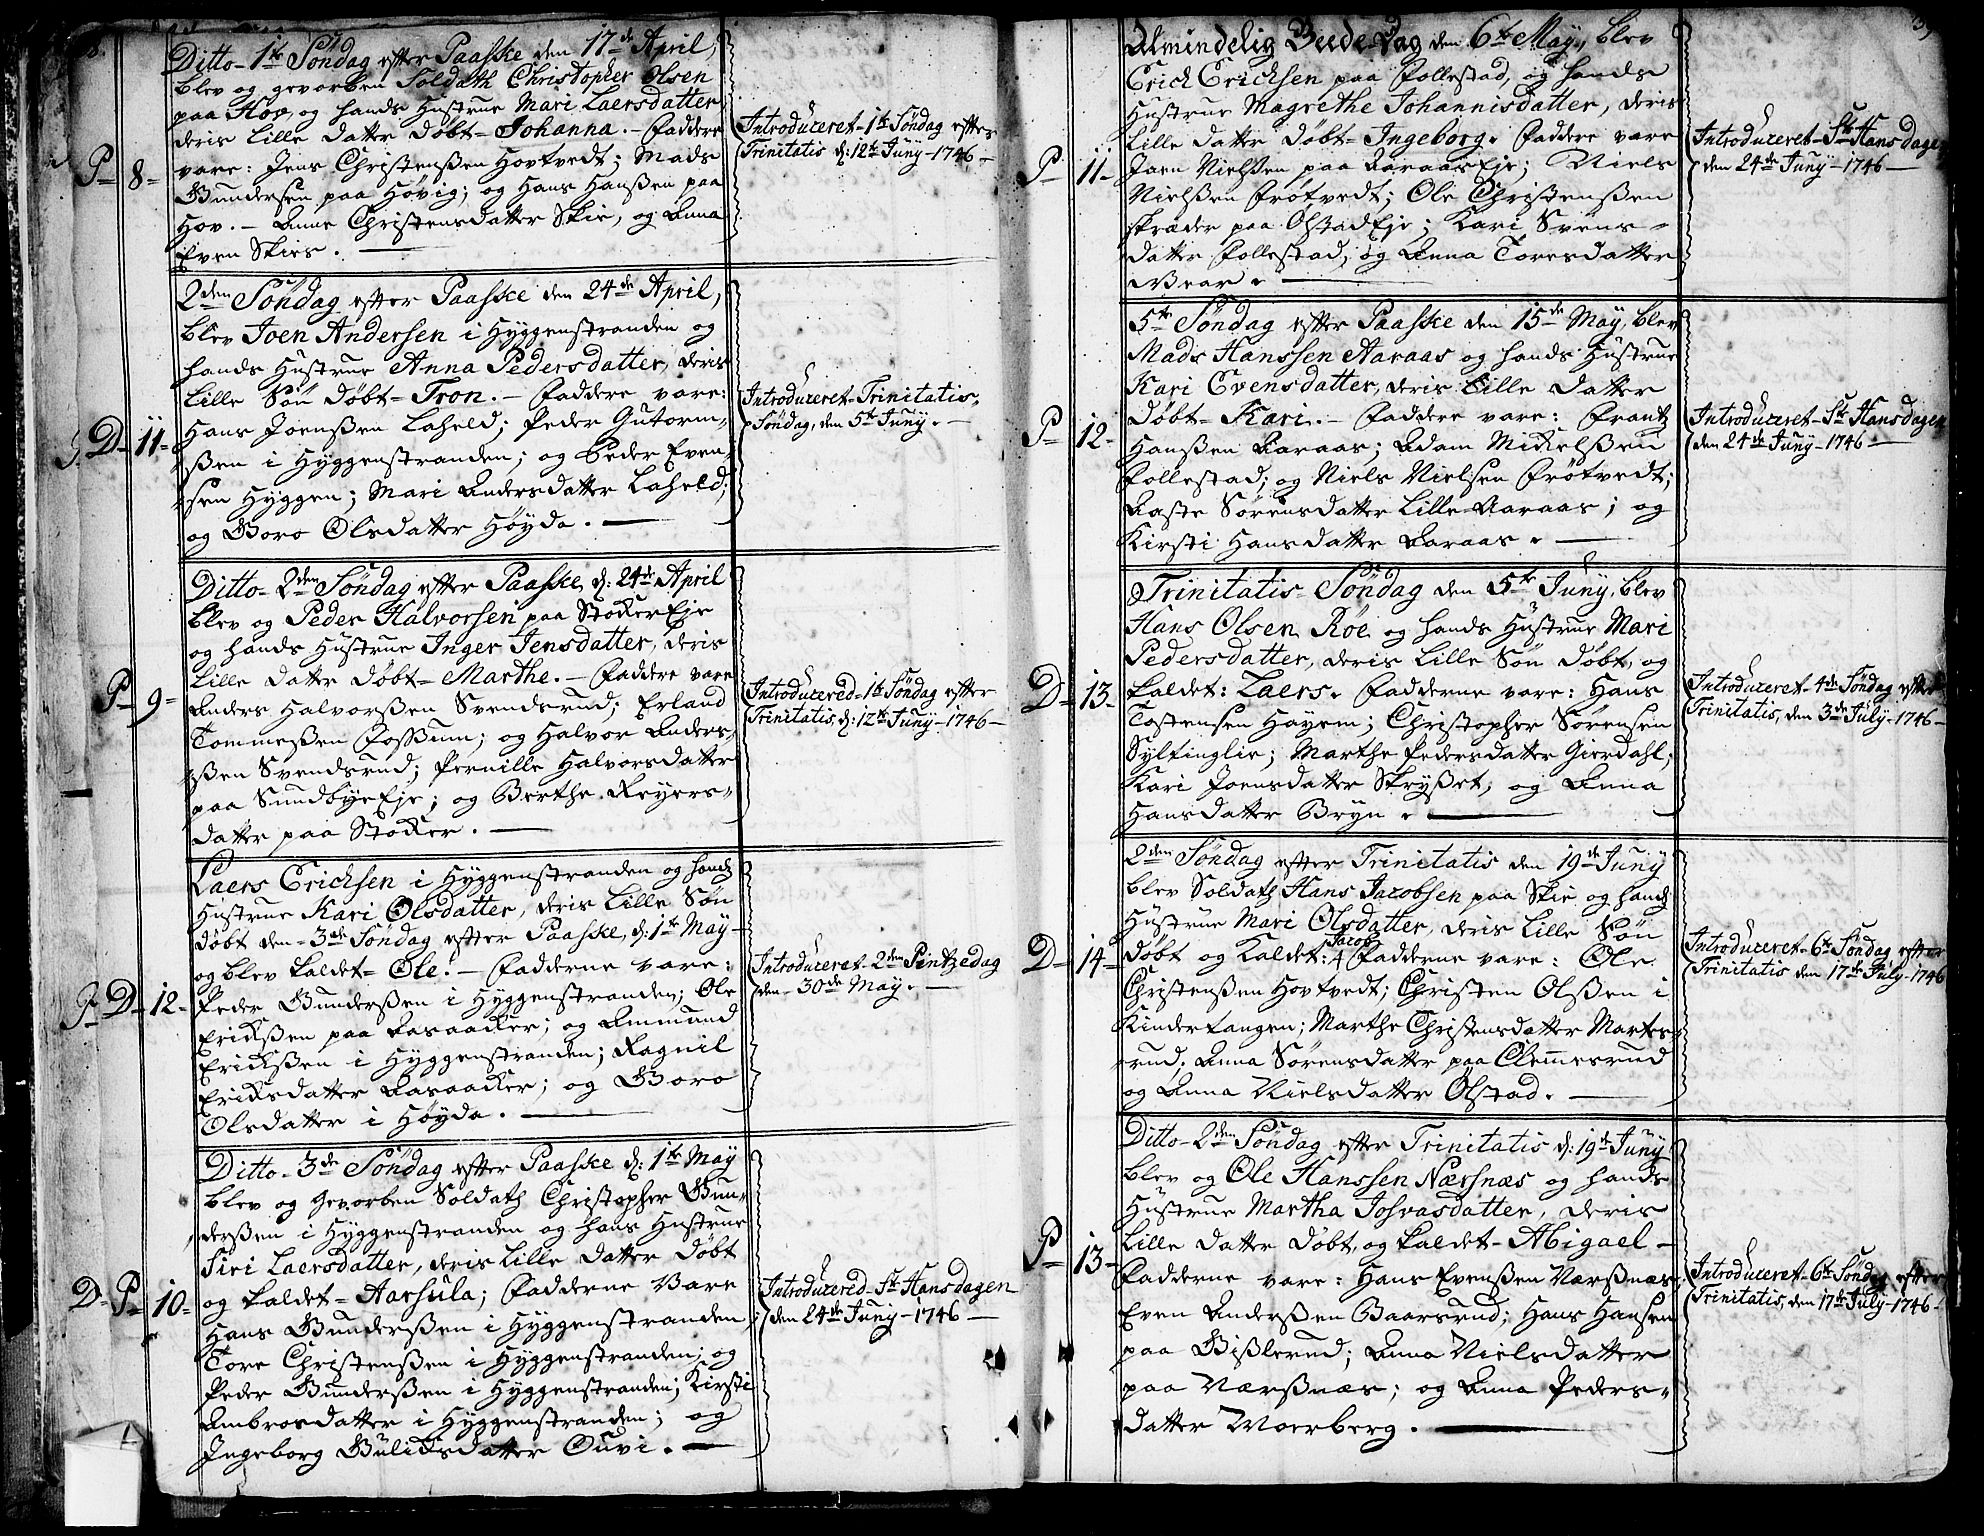 Ditto - 1te Söndag efter Paaske den 17de April,
blev og gevorben Soldath Christopher Olsen
paa Hov, og hands Hustrue Mari Laersdatter
deris Lille Datter Döbt - Johanna. - Faddere
vare: Jens Christenßen Hovtvedt; Mads
Gundersen paa Høvig; og Hans Hanßen paa
Hov. - Anne Christensdatter Skie, og Anna
Even Skies.
P - 8 -
Introduceret - 1te Söndag efter
Trinitatis d: 12te Juny - 1746 -
2den Söndag efter Paaske den 24de April,
blev Joen Andersen i Hyggenstranden og
hands Hustrue Anna Pedersdatter, deris
Lille Sön Döbt - Tron. - Faddere vare:
Hans Joenßen Laheld; Peder Gutorm-
ßen i Hyggenstranden; og Peder Even-
sen Hyggen; Mari Andersdatter Laheld;
og Goro Olsdatter Höyda.
D - 11 -
Introduceret - Trinitatis
Söndag, den 5te Juny. -
Ditto - 2den Söndag efter Paaske, d: 24de April
blev og Peder Halvorsen paa StockerEje
og hands Hustrue Inger Jensdatter, deris
Lille Datter Döbt - Marthe. - Faddere vare
Anders Halvorßen Svendsrud; Erland
Tommeßen Foßum; og Halvor Anders-
ßen Svendsrud; Pernille Halvorsdatter
paa SundbyeEje; og Berthe Reyers-
datter paa Stocker.
P - 9 -
Introducered - 1te Söndag efter
Trinitatis, d: 12te Juny - 1746 -
Laers Erichsen i Hyggenstranden og hands
Hustrue Kari Olsdatter, deris Lille Sön
Döbt den - 3de Söndag efter Paaske, d: 1te May -
og blev kaldet - Ole. - Fadderne vare:
Peder Gunderßen i Hyggenstranden; Ole
Erickßen paa Aasaacker; og Ammund
Erickßen i Hyggenstranden; Ragnil
Ericksdatter Aasaacker; og Goro
Olsdatter i Höyda.
D - 12 -
Introduceret - 2den Pintzedag
den - 30de May. -
Ditto - 3de Söndag efter Paaske d: 1te May
blev og Gevorben Soldath Christopher Gun-
derßen i Hyggenstranden og hans Hustrue
Siri Laersdatter, deris Lille Datter Döbt
og kaldet - Aarsula; Fadderne Vare
Hans Gunderßen i Hyggenstranden
Tore Christenßen i Hyggenstranden; og
Peder Gunderßen i Hyggenstranden; Kirsti
Ambrosdatter i Hyggenstranden; og
Ingeborg Gulicksdatter Ouvi. -
D - P - 10 -
Introducered - St Hansdagen
den 24de Juny - 1746 -
Almindelig Beede-Dag den 6te May, blev
Erich Erichsen paa Follestad, og hands
Hustrue Magrethe Johannisdatter, deris
Lille Datter Döbt - Ingeborg. Faddere vare
Joen Nielßen paa AaraasEje; Niels
Nielßen Frötvedt; Ole Christenßen
skræder paa OlstadEje; Kari Svens-
datter Follestad, og Anna Toresdatter
P - 11 -
Introduceret - St Hansdagen
den 24de Juny - 1746 -
5te Söndag efter Paaske den 15de May, blev
Mads Hanssen Aaraas og hands Hustrue
Kari Evensdatter, deris Lille Datter
Döbt - Kari. - Faddere vare: Frantz
Hanßen Aaraas; Adam Mickelßen
Follestad; og Niels Nielsen Frötvedt;
Aaste Sörensdatter Lille-Aaraas; og
Kirsti Hansdatter Aaraas.
P - 12 -
Introduceret - St Hansdagen
den 24de Juny - 1746 -
Trinitatis - Söndag den 5te Juny, blev
Hans Olsen Röe og hands Hustrue Mari
Pedersdatter, deris Lille Sön Döbt, og
kaldet: Laers. Fadderne vare: Hans
Tostensen Hayem; Christopher Sörensen
Syltinglie; Marthe Pedersdatter Gierdahl;
Kari Joensdatter Skryßet; og Anna
Hansdatter Bryn.
D - 13 -
Introduceret - 4de Söndag efter
Trinitatis, den 3de July - 1746 -
2den Söndag efter Trinitatis den 19de Juny
blev Soldath Hans Jacobsen paa Skie og hands
Hustrue Mari Olsdatter, deris Lille Sön
Jacob
Döbt og kaldet: Fadderne vare: Ole
Christenßen Hovtvedt; Christen Olßen i
Kindertangen; Marthe Christensdatter Martes-
rud; Anna Sörensdatter paa Clemmesrud
og Anna Nielsdatter Olstad.
D - 14 -
Introduceret - 6te Söndag efter
Trinitatis den 17de July - 1746
Ditto - 2den Söndag efter Trinitatis d: 19de Juny
blev og Ole Hanssen Næsnæs og hands
Hustrue Martha Josvasdatter, deris
Lille Datter Döbt, og kaldet - Abigael -
Fadderne vare: Hans Evenßen Nærßnæs
Even Anderßen Baarsrud; Hans Hansen
paa Bißlerud; Anna Nielsdatter
paa Nærßnæs; og Anna Peders-
datter Morberg.
P - 13 -
Introduceret - 6te Söndag efter
Trinitatis, den 17de July - 1746 -